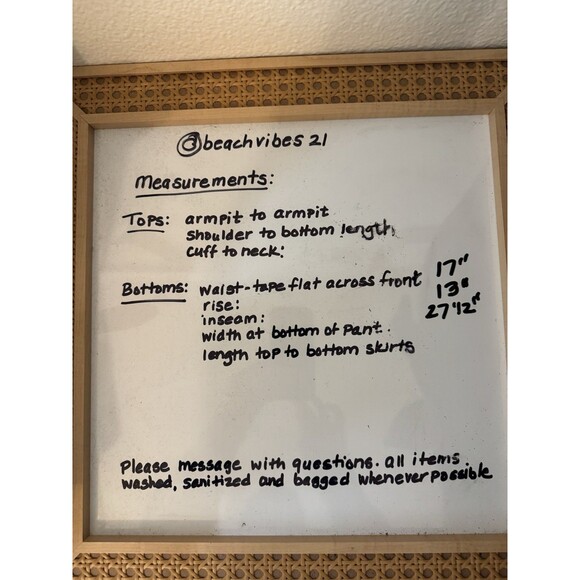 @beachvibes 21
Measurements:
Tops: armpit to armpit
shoulder to bottom length
cuff to neck:
Bottoms: waist-tape flat across front 17"
rise: 13"
inseam: 27 1/2"
width at bottom of pant.
length top to bottom skirts
Please message with questions. all items.
washed, sanitized and bagged whenever possible